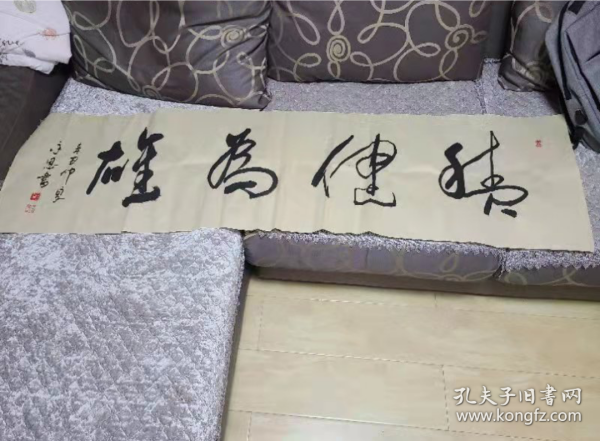 積健為雄
酉仲夏
書
孔夫子旧书网
www.kongfz.com